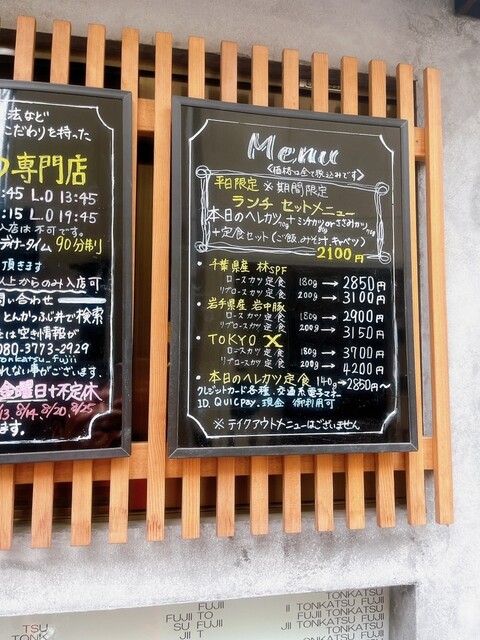 法など
こだわりを持った
専門店
:45 L.O 13:45
:15 L.O 19:45
入店は不可です。
ディナータイム 90分制り
頂きます
以上からのみ入店可
問い合わせ
とんかつふじ井で検索
は空き情報が
080-3773-2929
tonkatsu-fujii
れない事がございます。
金曜日+不定休
13, 8/14, 8/20, 8/25
ます。
Menu
<価格は全て税込みです>
平日限定 ※期間限定
ランチ セットメニュー
本日のヘレカツ+ミンチカツorささみカツ
+定食セット(ご飯,みそ汁,キャベツ)
2100円
・千葉県産 林SPF
ロースカツ定食 180g → 2850円
リブロースカツ定食 200g → 3100円
・岩手県産 岩中豚
ロースカツ定食 180g → 2900円
リブロースカツ定食 200g → 3150円
・TOKYO X
ロースカツ定食 180g → 3700円
リブロースカツ定食 200g → 4200円
・本日のヘレカツ定食 140g→2850円~
クレジットカード各種、交通系電子マネー
ID、QUICPay、現金 御利用可
※テイクアウトメニューはございません
TSU
TONK
FUJII
FUJII TO
SU FUJII
JII T
TONKATSU
II TONKATSU FUJII
TONKATSU FUJII
TONKATSU FUJII